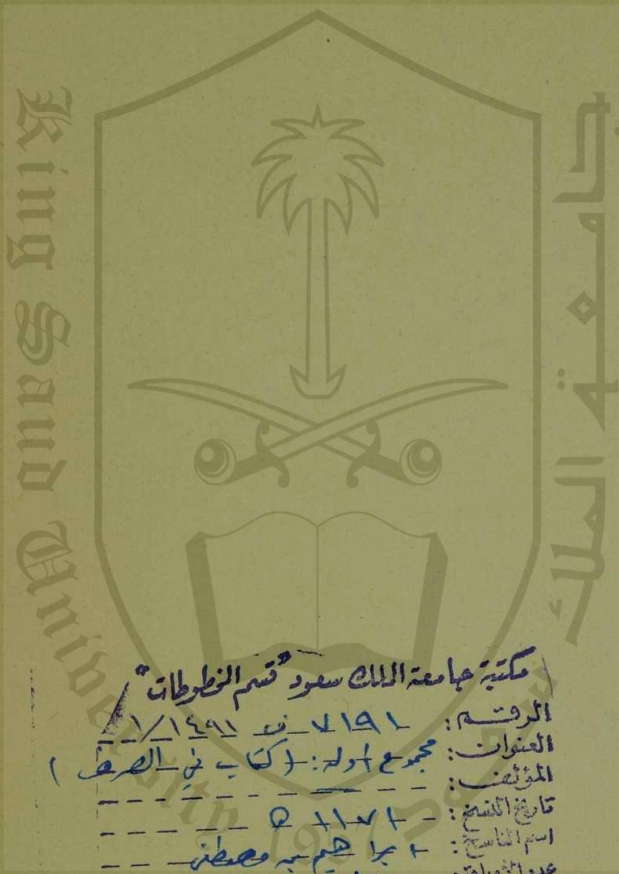 King Saud University
جامعة الملك
مكتبة جامعة الملك سعود "قسم المخطوطات"
الرقم: ٧١٩١ ف ١/١٤٩١
العنوان: مجموع أوله: (كتاب في الصرف)
المؤلف:
تاريخ النسخ: ١١٧١ هـ
اسم الناسخ: ابراهيم بن مصطفى
عدد الأوراق: